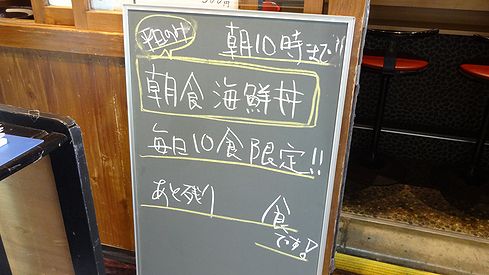 平日のみ 朝10時まで!!
朝食 海鮮丼
毎日10食限定!!
あと残り 食
です!